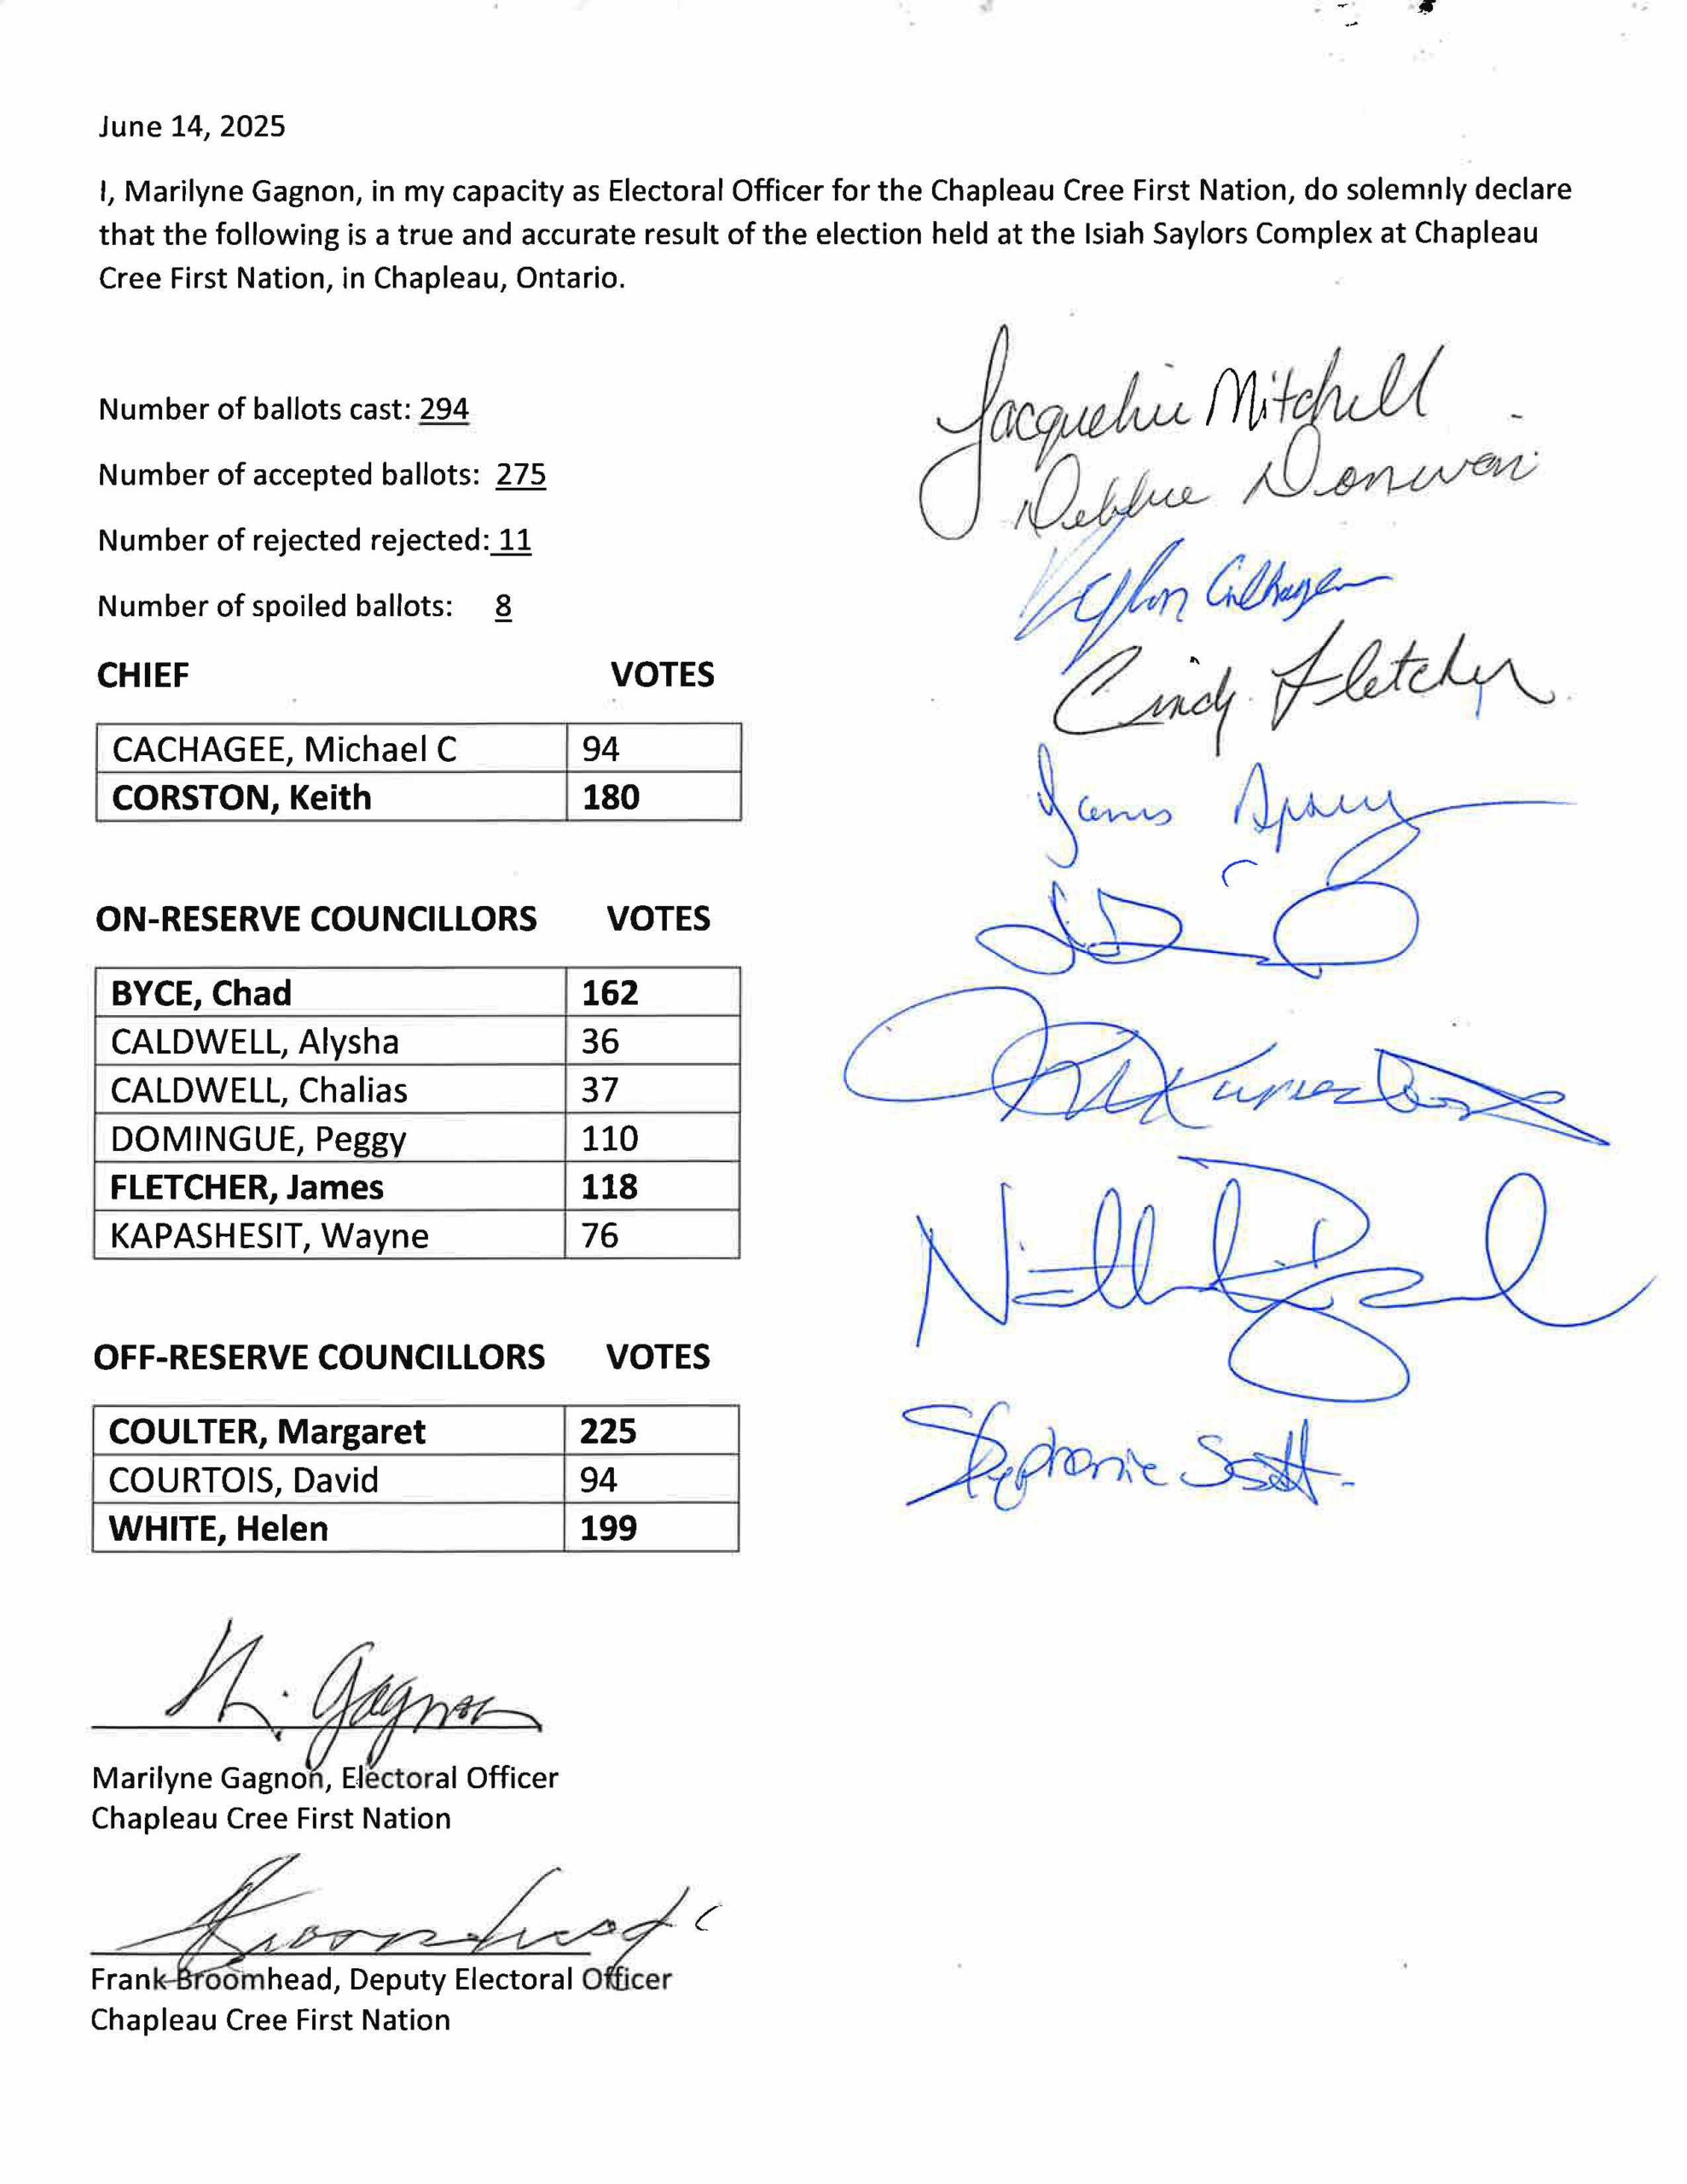 June 14, 2025
I, Marilyne Gagnon, in my capacity as Electoral Officer for the Chapleau Cree First Nation, do solemnly declare
that the following is a true and accurate result of the election held at the Isiah Saylors Complex at Chapleau
Cree First Nation, in Chapleau, Ontario.
Number of ballots cast: 294
Number of accepted ballots: 275
Number of rejected rejected: 11
Number of spoiled ballots: 8
CHIEF VOTES
CACHAGEE, Michael C 94
CORSTON, Keith 180
ON-RESERVE COUNCILLORS VOTES
BYCE, Chad 162
CALDWELL, Alysha 36
CALDWELL, Chalias 37
DOMINGUE, Peggy 110
FLETCHER, James 118
KAPASHESIT, Wayne 76
OFF-RESERVE COUNCILLORS VOTES
COULTER, Margaret 225
COURTOIS, David 94
WHITE, Helen 199
Jacqueline Mitchell
Debbie
Cindy Fletcher
Stephanie Scott
M. Gagnon
Marilyne Gagnon, Electoral Officer
Chapleau Cree First Nation
Frank Broomhead, Deputy Electoral Officer
Chapleau Cree First Nation